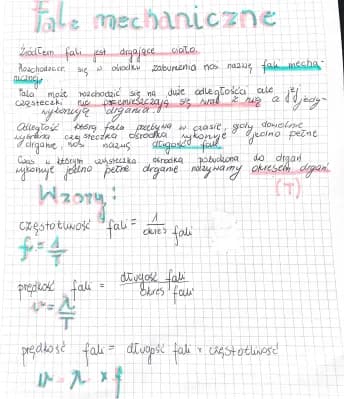 Fale mechaniczne
Źródłem fali jest drgające ciało.
Rozchodzące się w ośrodku zaburzenia nos nazwę fali mecha-
nicznej.
Fala może rozchodzić się na duże odległości ale jej
cząsteczki nie przemieszczają się wraz z nią a jedy-
wykonują drgania.
Odległość którą fala przebywa w czasie, gdy dowolnie
wybrana cząsteczka ośrodka wykonuje jedno pełne
drganie, nos nazwę długość fali.
Czas w którym cząsteczka ośrodka pobudzona do drgań
wykonuje jedno pełne drganie nazywamy okresem drgań
(T)
Wzory:
częstotliwość fali = 1 / okres fali
f = 1/T
prędkość fali = długość fali / okres fali
v = λ/T
prędkość fali = długość fali × częstotliwość
v = λ × f